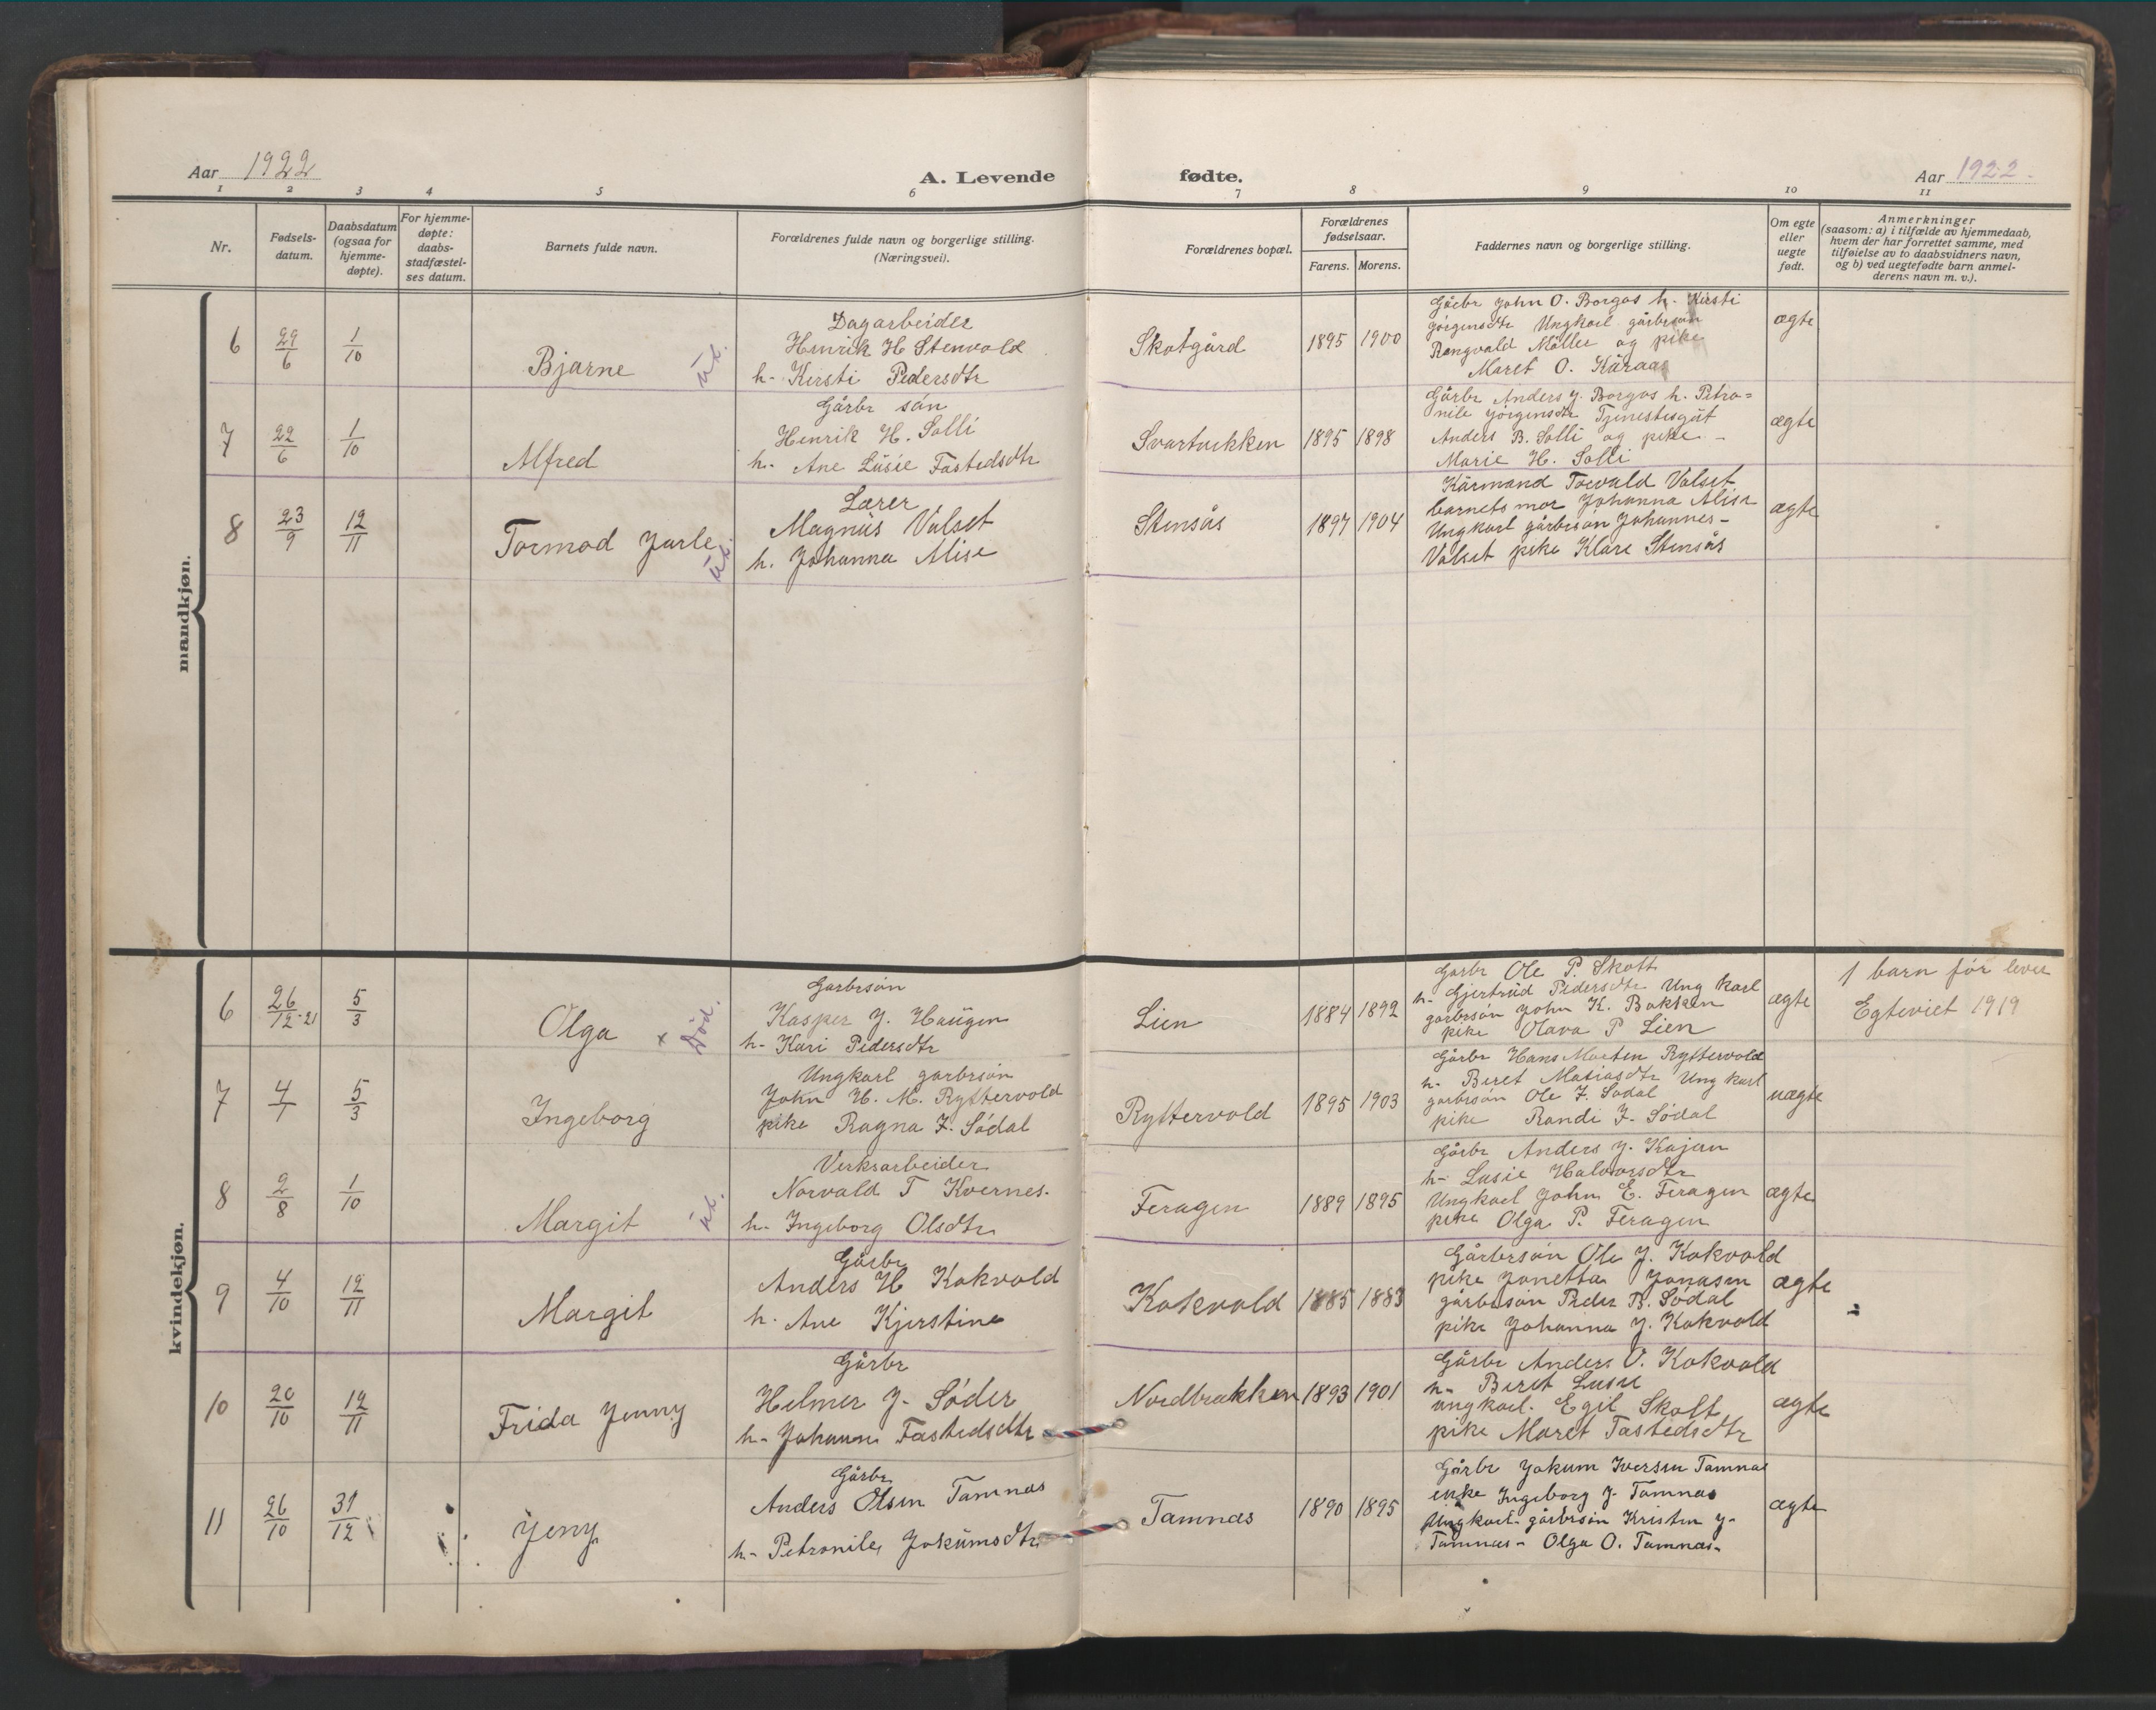 Aar 1922
A. Levende fødte.
Aar 1922.
1 2 3 4 5 6 7 8 9 10 11
Nr.
Fødsels-datum.
Daabsdatum (ogsaa for hjemme-døpte).
For hjemme-døpte: daabs-stadfæstel-ses datum.
Barnets fulde navn.
Forældrenes fulde navn og borgerlige stilling.
(Næringsvei).
Forældrenes bopæl.
Forældrenes fødselsaar.
Farens. Morens.
Faddernes navn og borgerlige stilling.
Om egte eller uegte født.
Anmerkninger
(saasom: a) i tilfælde av hjemmedaab,
hvem der har forrettet samme, med
tilføielse av to daabsvidners navn,
og b) ved uegtefødte barn anmel-
derens navn m. v.).
mandkjøn.
6 29/6 1/10 Bjarne ut.
Dagarbeider
Henrik H Stenvold
h- Kirsti Pedersdtr
Skotgård 1895 1900
Gårbr John O. Borgos h. Kirsti
Jörgensdtr Ungkarl gårbrsön
Rangvald Möller og pike
Maret O. Kåraas
ægte
7 22/6 1/10 Alfred
Gårbr sön
Henrik H. Solli
h- Ane Lusie Tastedsdtr
Svartvikken 1895 1898
Gårbr Anders J. Borgos h. Petro=
nile Jörgensdtr Tjenestegut
Anders B. Solli og pike -
Marie H. Solli
ægte
8 23/9 12/11 Tormod Jarle ut.
Lærer
Magnus Valset
h. Johanna Alise
Stensås 1897 1904
Kårmand Torvald Valset
barnets mor Johanna Alise
Ungkarl gårbrsön Johannes-
Valset pike Klare Stensås
ægte
kvindekjøn.
6 26/12-21 5/3 Olga x Död.
Garbrsön
Kasper J. Haugen
h- Kari Pedersdtr
Lien 1884 1892
Garbr Ole P. Skott
h- Gjertrud Pedersdtr Ung karl
garbrsön John K. Bakken
pike Olava P Lien
ægte
1 barn för lever
Egteviet 1919
7 4/1 5/3 Ingeborg
Ungkarl garbrsön
John H. M. Ryttervold
pike Ragna J. Södal
Ryttervold 1895 1903
Gårbr Hans Morten Ryttervold
h- Beret Matiasdtr Ung karl
garbrsön Ole J. Södal
pike Randi J. Södal
uægte
8 2/8 1/10 Margit ut.
Verksarbeider
Norvald T Kvernes.
h- Ingeborg Olsdtr
Feragen 1889 1895
Gårbr Anders J. Kojan
h- Lusie Halvorsdtr
Ungkarl John E. Feragen
pike Olga P. Feragen
ægte
9 4/10 12/11 Margit
Gårbr
Anders H Kokvold
h. Ane Kjerstine
Kokvold 1885 1883
Gårbrsön Ole J. Kokvold
pike Jonetta Jonasen
gårbrsön Peder B. Södal
pike Johanna J. Kokvold
ægte
10 20/10 12/11 Frida Jenny
Gårbr
Helmer J. Söder
h- Johanne Tastedsdtr
Nordbrekken 1893 1901
Gårbr Anders O. Kokvold
h- Beret Lusie
ungkarl. Egil Skott
pike Maret Tastedsdtr
ægte
11 26/10 31/12 Jeny
Gårbr
Anders Olsen Tamnes
h- Petronile, Jokumsdtr
Tamnes 1890 1895
Gårbr Jokum Iversen Tamnes
enke Ingeborg J. Tamnes
Ungkarl- gårbrsön Kristen J-
Tamnes- Olga O. Tamnes-
ægte